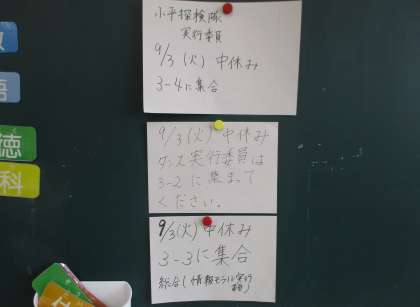 小平探検隊
実行委員
9/3(火) 中休み
3-4に集合
9/3(火) 中休み
ダンス実行委員は
3-2に集まって
ください。
9/3(火) 中休み
3-3に集合
総合(情報モラル実行
徳
科
語